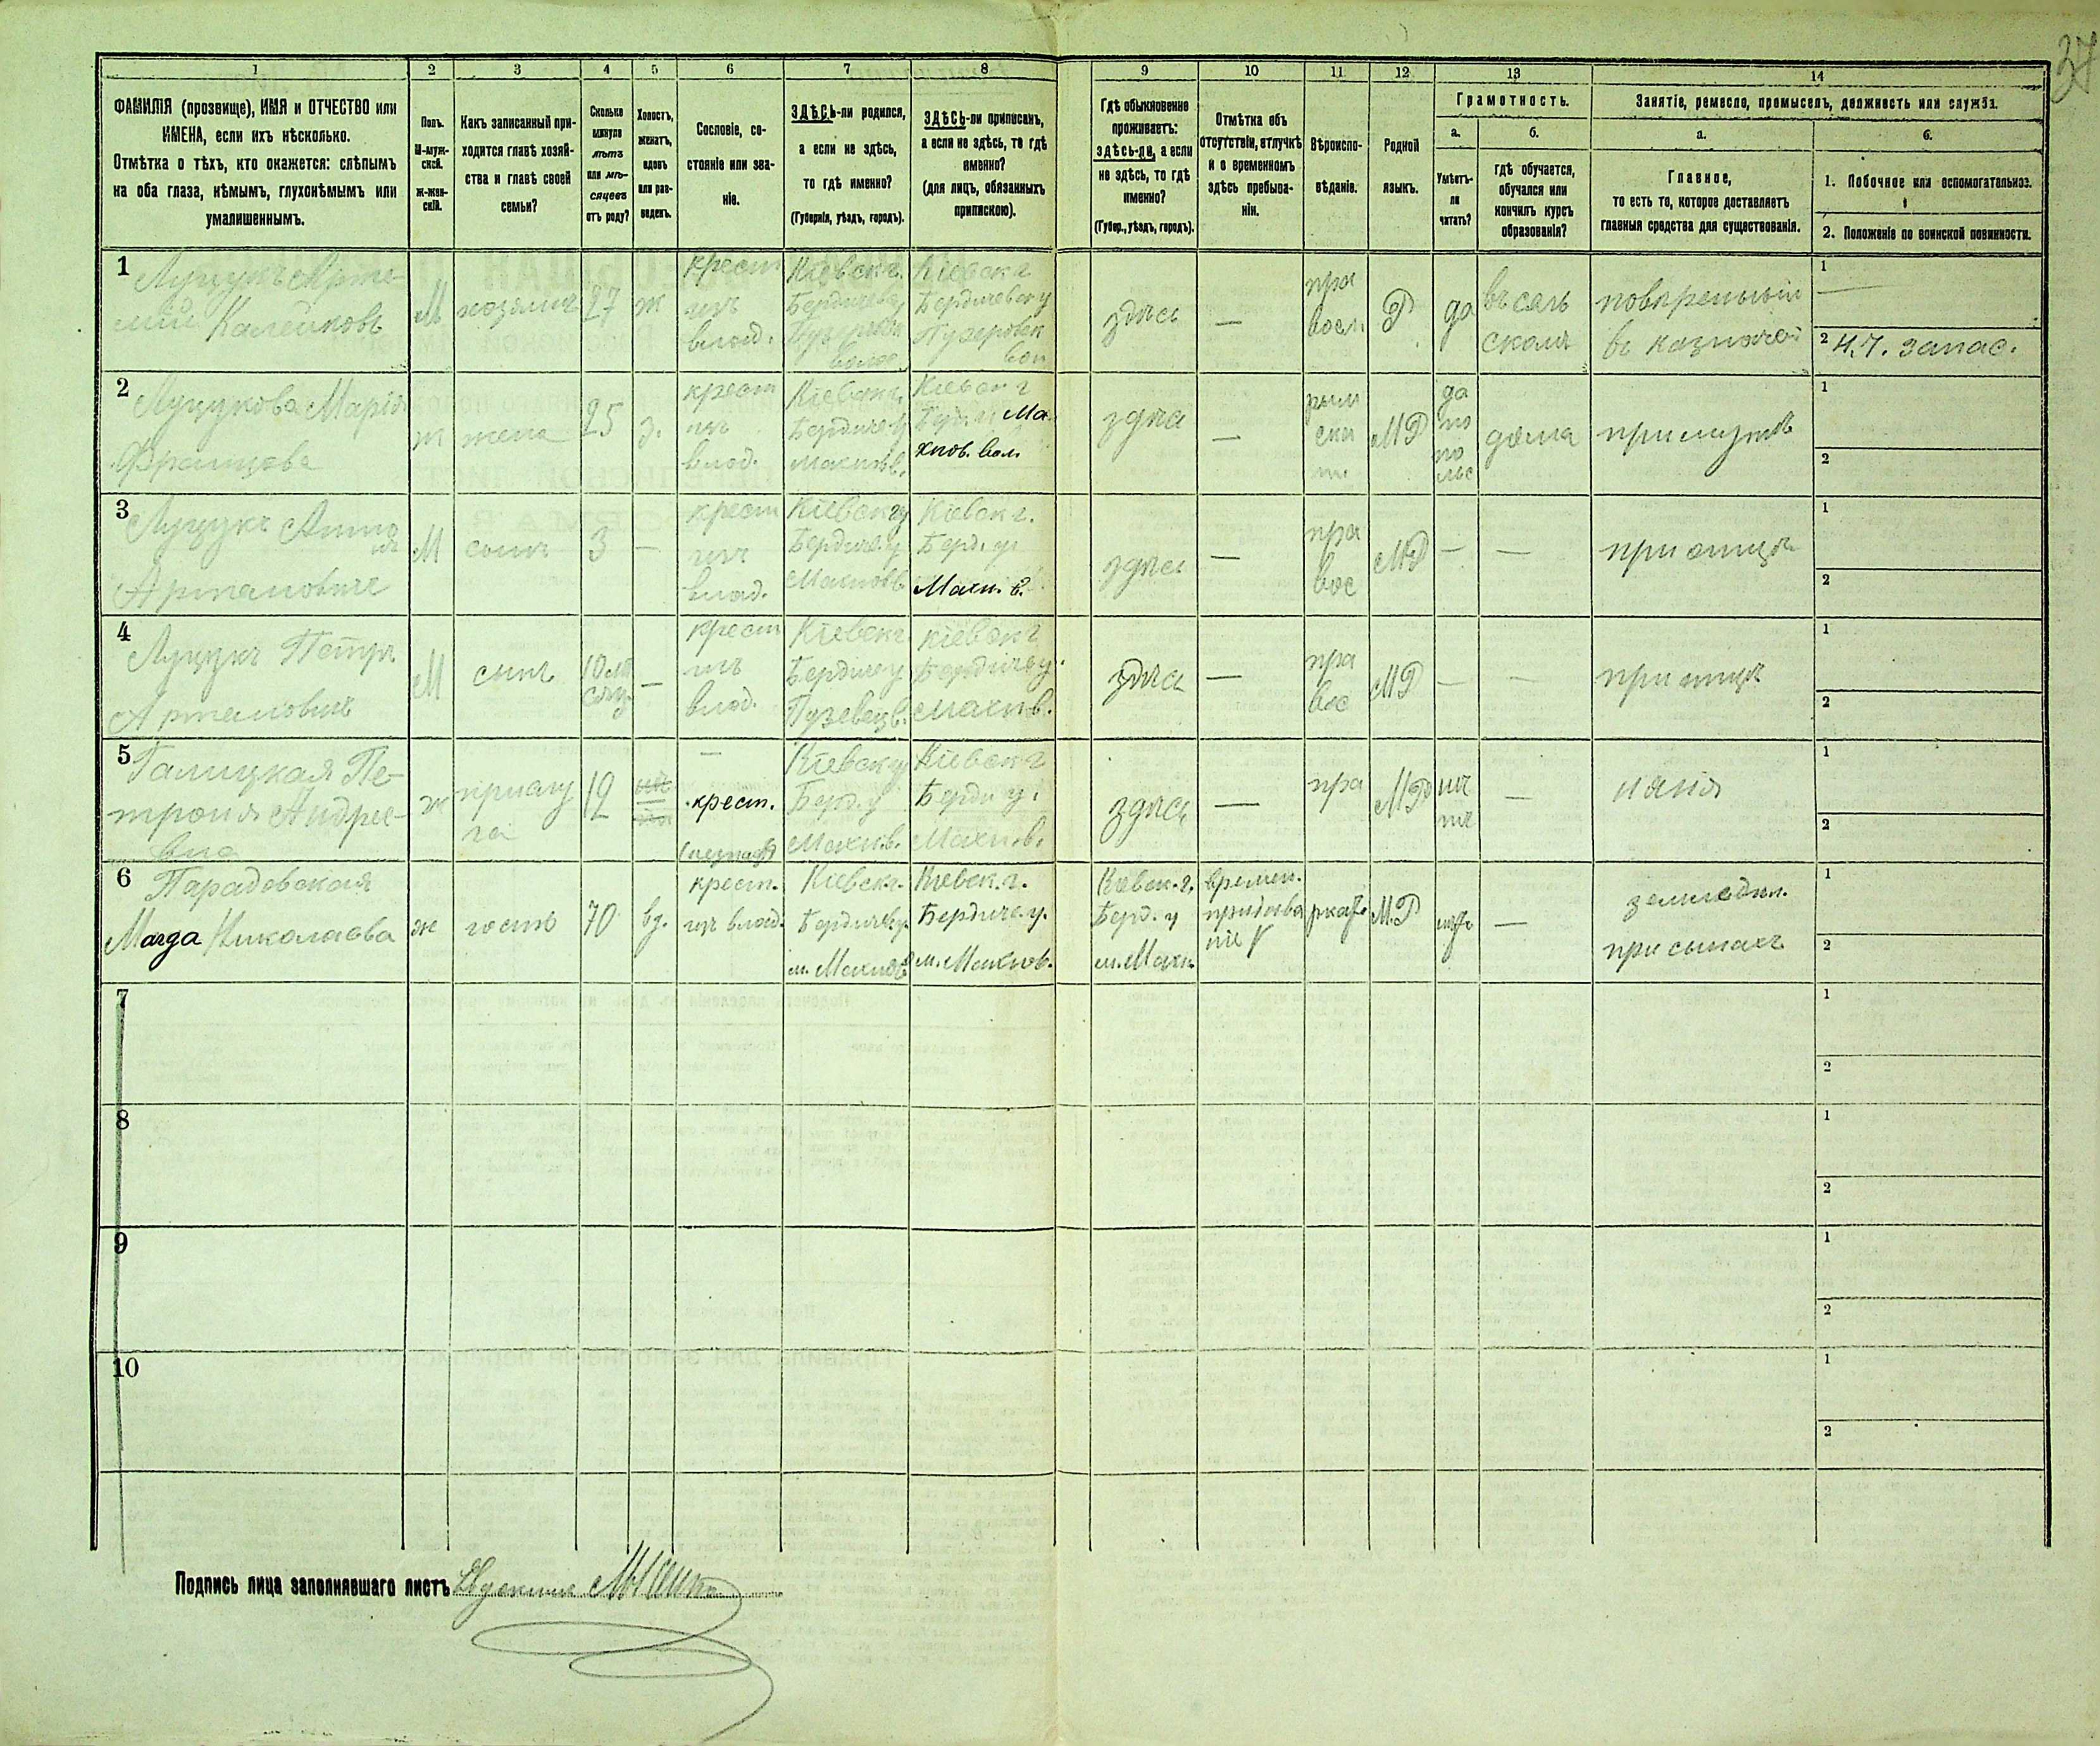 37
1 2 3 4 5 6 7 8 9 10 11 12 13 14
ФАМИЛІЯ (прозвище), ИМЯ и ОТЧЕСТВО или
ИМЕНА, если ихъ нѣсколько.
Отмѣтка о тѣхъ, кто окажется: слѣпымъ
на оба глаза, нѣмымъ, глухонѣмымъ или
умалишеннымъ.
Полъ.
М-муж-
ской.
Ж-жен-
скій.
Какъ записанный при-
ходится главѣ хозяй-
ства и главѣ своей
семьи?
Сколько
минуло
лѣтъ
или мѣ-
сяцевъ
отъ роду?
Холостъ,
женатъ,
вдовъ
или раз-
веденъ.
Сословіе, со-
стояніе или зва-
ніе.
ЗДѢСЬ-ли родился,
а если не здѣсь,
то гдѣ именно?
(Губернія, уѣздъ, городъ).
ЗДѢСЬ-ли приписанъ,
а если не здѣсь, то гдѣ
именно?
(для лицъ, обязанныхъ
припискою).
Гдѣ обыкновенно
проживаетъ:
здѣсь-ли, а если
не здѣсь, то гдѣ
именно?
(Губер., уѣздъ, городъ).
Отмѣтка объ
отсутствіи, отлучкѣ
и о временномъ
здѣсь пребыва-
ніи.
Вѣроиспо-
вѣданіе.
Родной
языкъ.
Грамотность.
а.
Умѣетъ-
ли
читать?
б.
гдѣ обучается,
обучался или
кончилъ курсъ
образованія?
Занятіе, ремесло, промыселъ, должность или служба.
а.
Главное,
то есть то, которое доставляетъ
главныя средства для существованія.
б.
1. Побочное или вспомогательное.
2. Положеніе по воинской повинности.
1
М
хозяинъ
27
ж
крест
изъ
влад.
Кіевск г.
Кіевск г
Бердичевск у
здѣсь
—
пра
восл
Р
да
въ сель
школѣ
1 —
2 Н. Ч. запас.
2
Марія
ж
жена
25
з.
крест
изъ
влад.
Кіевск г.
Бердиче у
Махновв.
Кіевск г
Берд. у Ма-
хнов. вол.
здѣсь
—
рим
ска
МР
да
по
по
льс
дома
при мужѣ
1
2
3
М
сынъ
3
—
крест
изъ
влад.
Кіевск г
Бердиче. у
Махновв
Кіевск г.
Берд. у
Махн. в.
здѣсь
—
пра
вос
МР
—
—
при отцѣ
1
2
4
Петръ
М
сынъ
—
крест
изъ
влад.
Кіевск г
Бердиче у
Кіевск г
Бердиче у.
Махн в.
здѣсь
—
пра
вос
МР
—
—
при отцѣ
1
2
5
Галицкая Пе-
троня Андрее-
вна
ж
прислу
га
12
—
крест.
Кіевск г
Берд. у
Махн в.
Кіевск г
Берди у.
Махн. в.
здѣсь
—
пра
МР
нѣ
тъ
—
няня
1
2
6
Парадовская
Магда Николаева
ж
гость
70
вд.
крест.
изъ влад.
Кіевск г.
Бердичев у.
м. Махнов
Кіевск. г.
Бердиче. у.
м. Махнов.
Кіевск. г.
Берд. у
м. Махн.
времен.
пребыва
ніе
М.Р
нѣтъ
—
земледѣл.
при сынахъ
1
2
7
1
2
8
1
2
9
1
2
10
1
2
Подпись лица заполнявшаго листъ